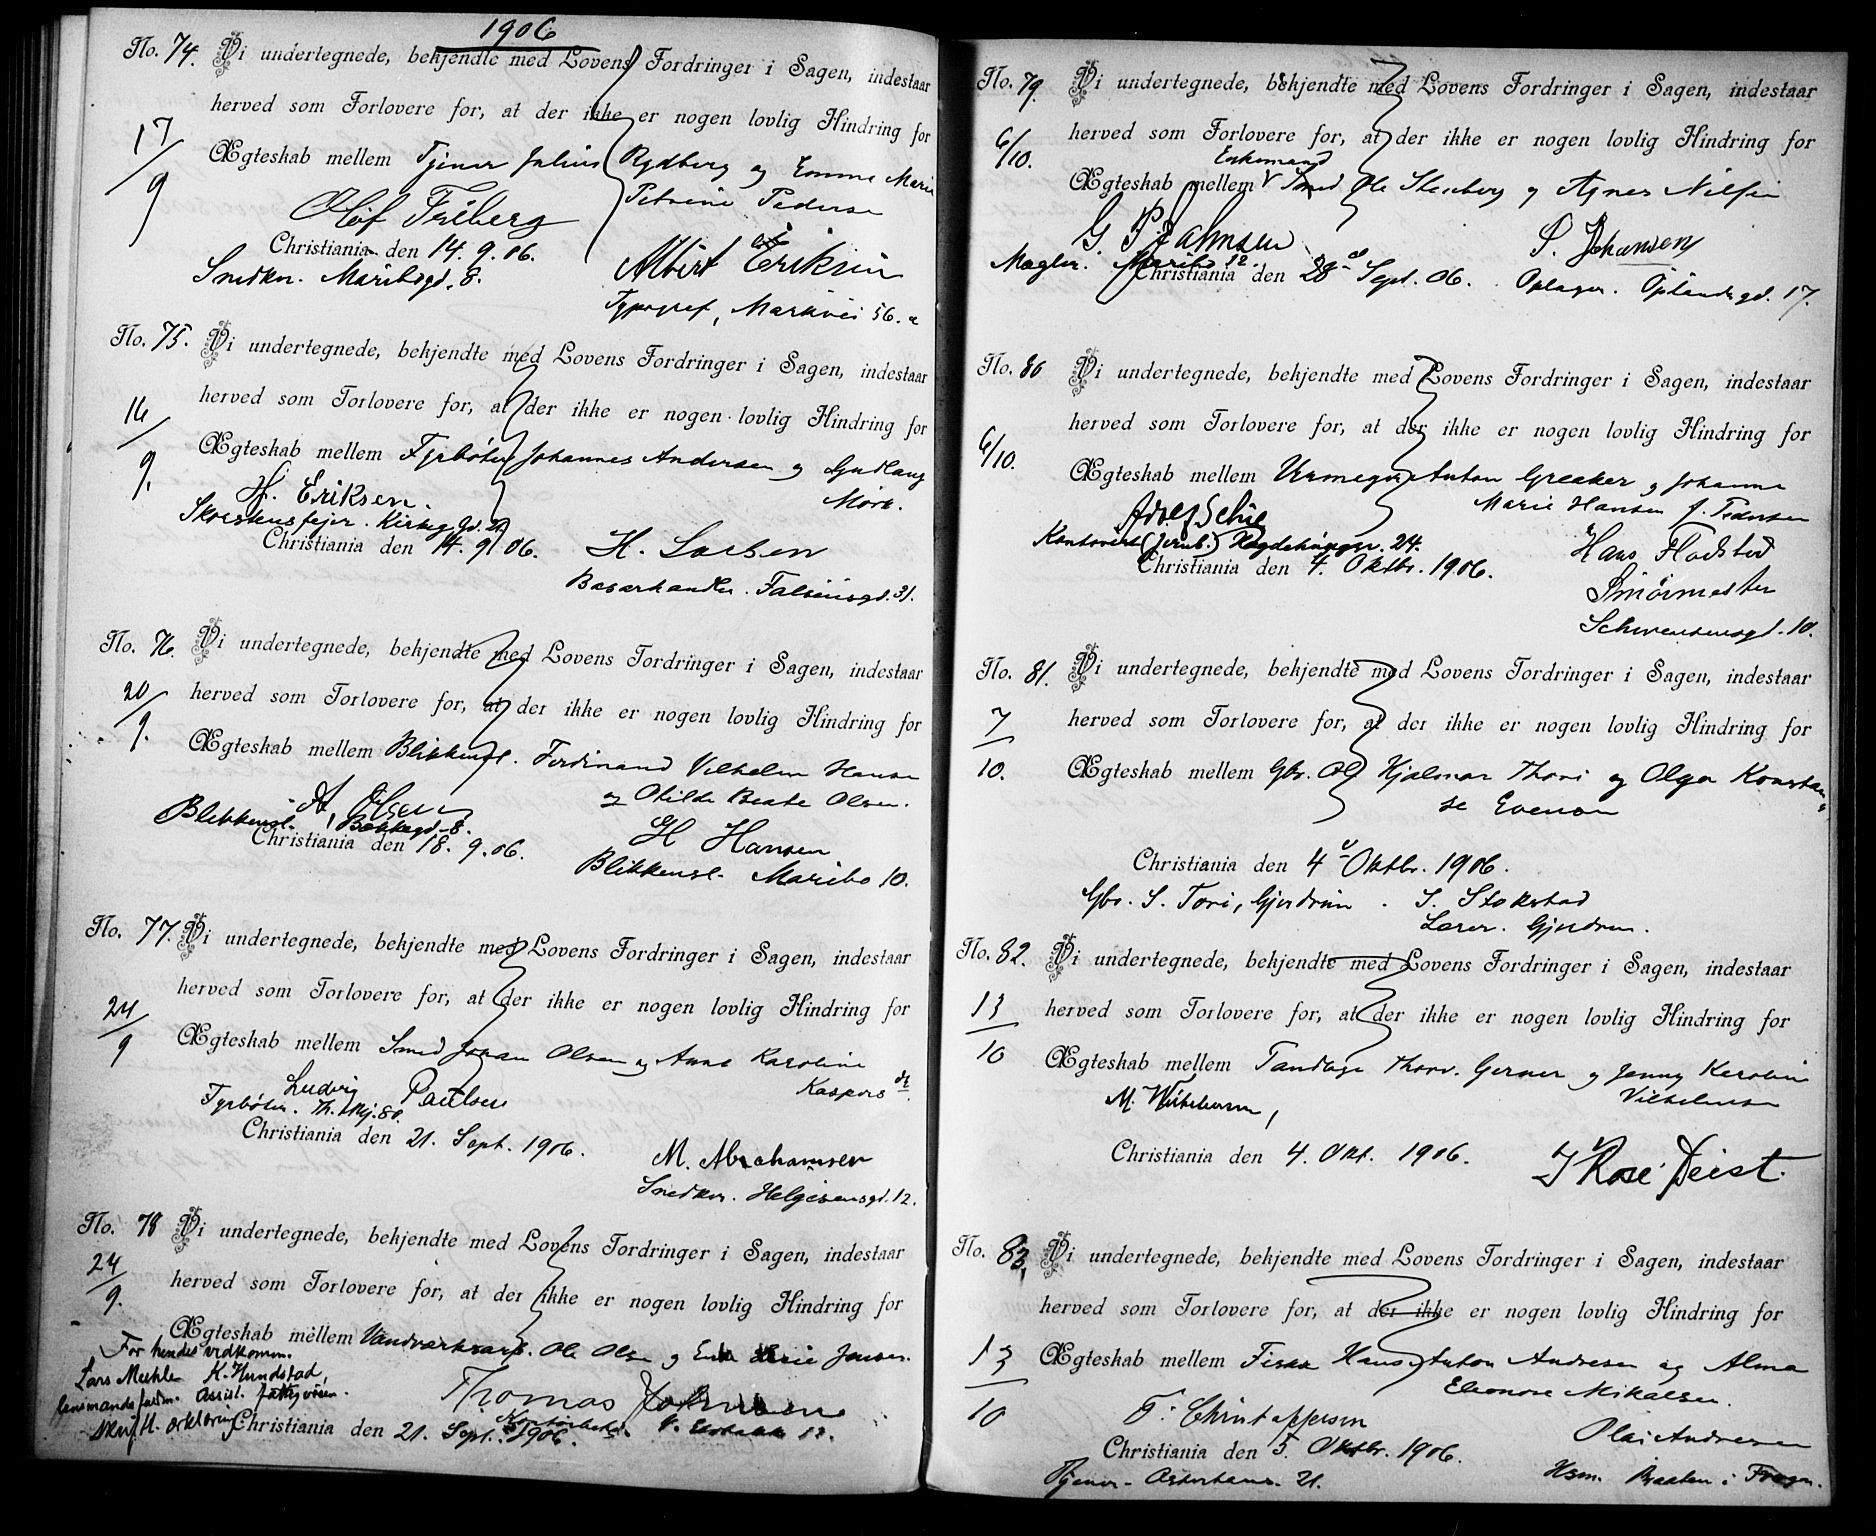 1906
No. 74. Vi undertegnede, bekjendte med Lovens Fordringer i Sagen, indestaar
herved som Forlovere for, at der ikke er nogen lovlig Hindring for
17/9
Ægteskab mellem Tjener Julius Rydberg og Emma Marie
Petrine Peders
Olof Friberg
Christiania den 14. 9. 06.
Albert Eriksen
Snedker. Maribogd. 8.
Typograf, Markvei 56. a
No. 75. Vi undertegnede, bekjendte med Lovens Fordringer i Sagen, indestaar
herved som Forlovere for, at der ikke er nogen lovlig Hindring for
16/9.
Ægteskab mellem Fyrbøter Johannes Andersen og Gudlaug
Mörk.
H. Eriksen.
Skorstensfejer. Kirkeg Gd.
Christiania den 14. 9. 06.
H. Larsen
Basarhandler. Falsensgd. 31.
No. 76. Vi undertegnede, bekjendte med Lovens Fordringer i Sagen, indestaar
20/9.
herved som Forlovere for, at der ikke er nogen lovlig Hindring for
Ægteskab mellem Blikkensl. Ferdinand Vilhelm Hansen
og Otilde Beate Olsen.
A. Olsen
Blikkensl. Bakkegd. 8.
Christiania den 18. 9. 06.
H Hansen
Blikkensl. Maribo 10.
No. 77. Vi undertegnede, bekjendte med Lovens Fordringer i Sagen, indestaar
herved som Forlovere for, at der ikke er nogen lovlig Hindring for
24/9
Ægteskab mellem Smed Johan Olsen og Anna Karoline
Kaspersdt.
Ludvig Paulsen
Fyrbøter. Th. Mej. 80.
Christiania den 21. Sept. 1906.
M. Abrahamsen
Snedker. Helgesensgd. 12.
No. 78 Vi undertegnede, bekjendte med Lovens Fordringer i Sagen, indestaar
24/9.
herved som Forlovere for, at der ikke er nogen lovlig Hindring for
Ægteskab mellem Vandværksarb. Ole Olsen og Jensen.
For hendes vidkomm.
Lars Mæhle K. Hundstad,
lensmandsfuldm. Assist. fattigvæsen.
Thomas Johnsen
skriftl. erklæring
Christiania den 21. Sept. 1906.
No. 79. Vi undertegnede, bekjendte med Lovens Fordringer i Sagen, indestaar
herved som Forlovere for, at der ikke er nogen lovlig Hindring for
6/10.
Enkemand
Ægteskab mellem Smed Ole Stenberg og Agnes Nilsen
G P Jahnsen
S. Johansen
Mægler. Maribo 12.
Christiania den 28d Sept. 06. Oplager. Oplandsgd. 17.
No. 80 Vi undertegnede, bekjendte med Lovens Fordringer i Sagen, indestaar
herved som Forlovere for, at der ikke er nogen lovlig Hindring for
6/10.
Ægteskab mellem Urmager Anton Greaker og Johanne
Marie Hansen f. Pedersen
Adolf Schie
Kontorist (Jernb.) Magdehaugsv. 24.
Christiania den 4. Oktbr. 1906.
Hans Flodstad
Smörmester
Schwensensgd. 10.
No. 81. Vi undertegnede, bekjendte med Lovens Fordringer i Sagen, indestaar
7/10.
herved som Forlovere for, at der ikke er nogen lovlig Hindring for
Ægteskab mellem Gbr. Ole Hjalmar Thori og Olga Konstan-
se Evenson
Christiania den 4d Oktbr. 1906.
Gbr. S. Tori, Gjerdrum. S. Stokstad
Lærer. Gjerdrum.
No. 82. Vi undertegnede, bekjendte med Lovens Fordringer i Sagen, indestaar
13/10
herved som Forlovere for, at der ikke er nogen lovlig Hindring for
Ægteskab mellem Tandlæge Thorv. Gerner og Jenny Karoline
Vilhelmsen
M. Wilhelmsen,
Christiania den 4. Okt. 1906.
No. 83, Vi undertegnede, bekjendte med Lovens Fordringer i Sagen, indestaar
herved som Forlovere for, at der ikke er nogen lovlig Hindring for
13/10
Ægteskab mellem Fisker Hans Anton Andresen og Alma
Eleonore Mikalsen.
T. Christoffersen
Olai Andresen
Christiania den 5. Oktbr. 1906.
Tjener - Akershus. 21.
Hsm. Braaten i Frogn.